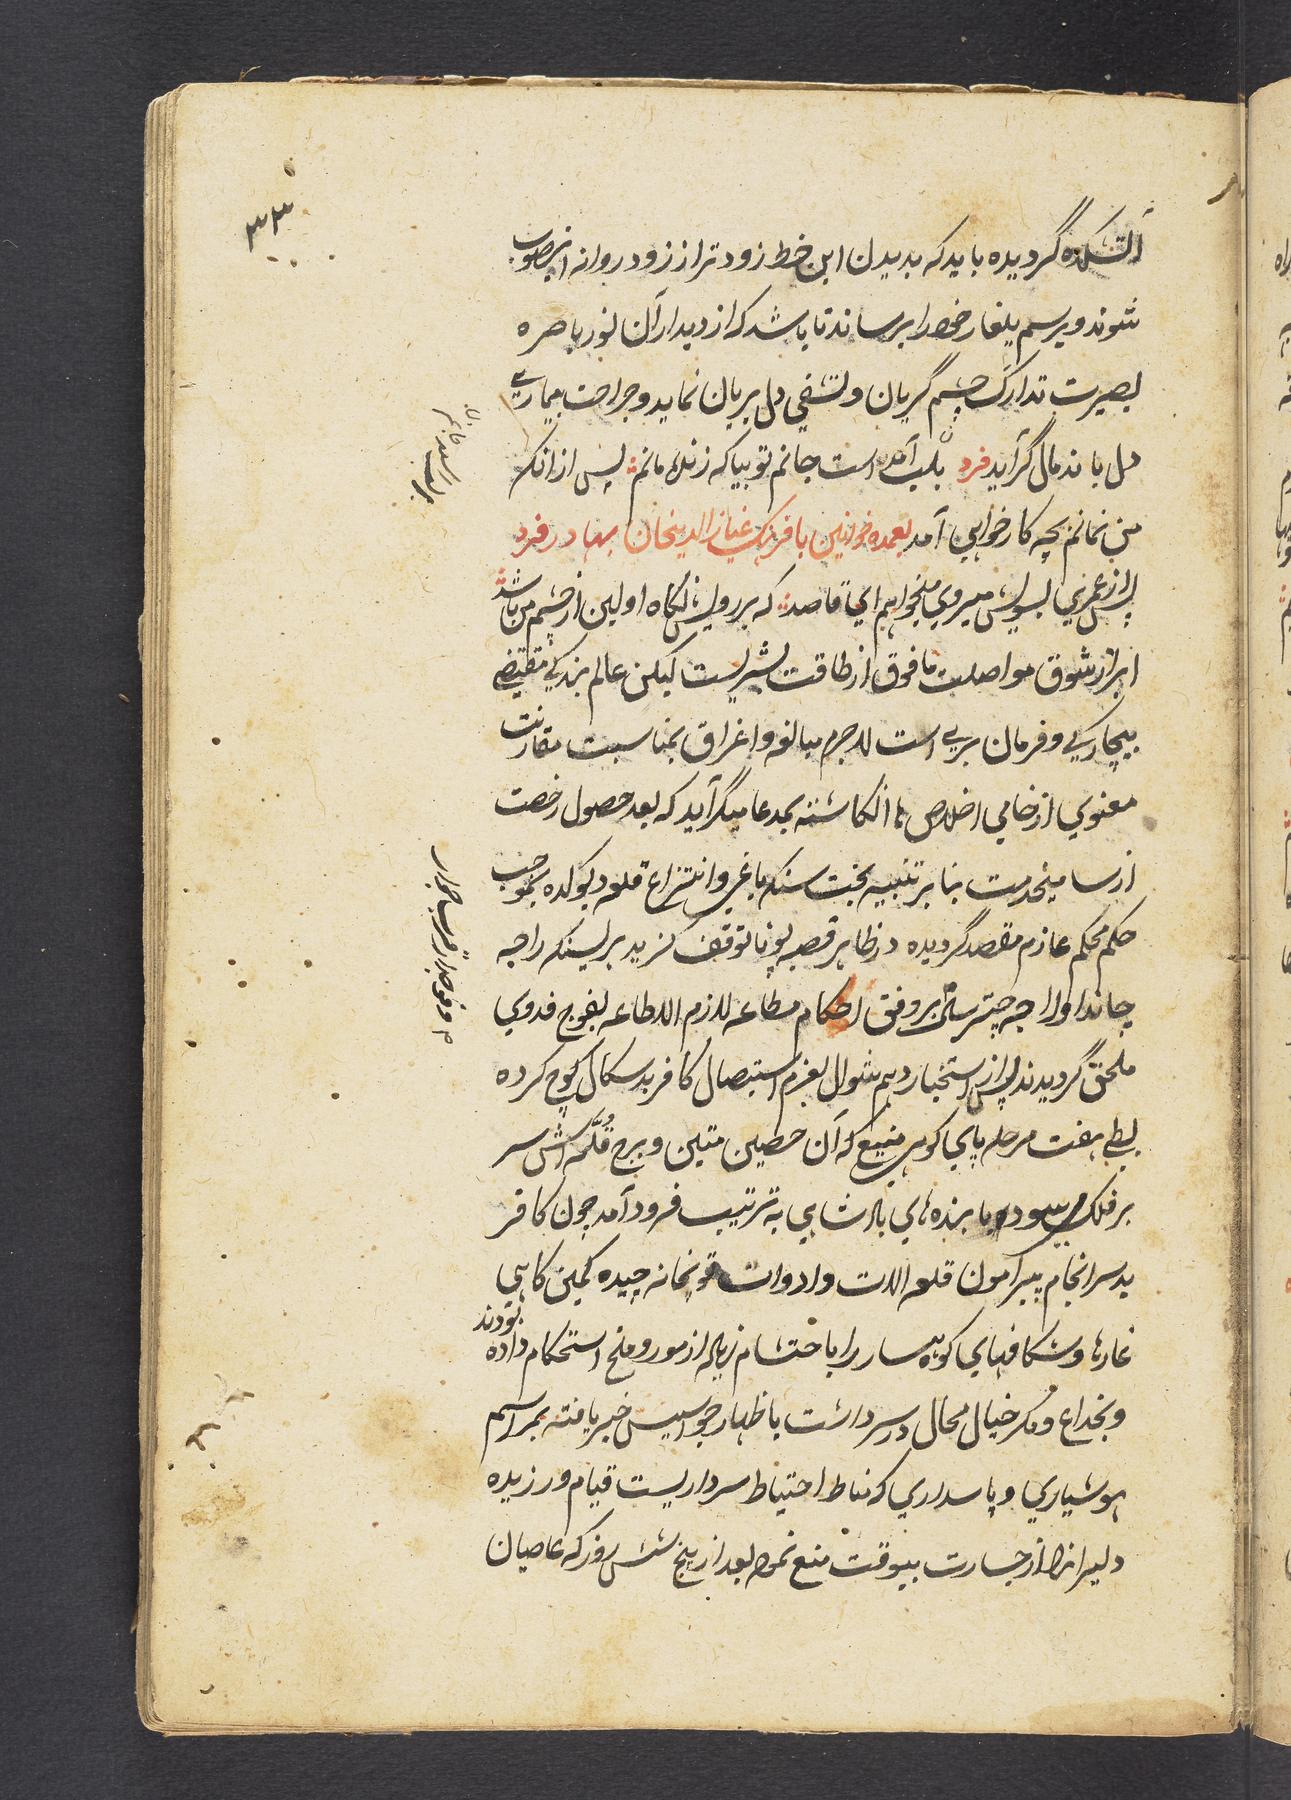 ۳۳
آتشکده گردیده باید که بدیدن این خط زود تر از زود روانه اینصوب
شوند و برسم یلغار خود را برسانند تا باشد که از دیدار آن نور باصره
بصیرت تدارک چشم گریان و تشفی دل بریان نماید و جراحت بیماری
دل باندمال گراید فرد بلب آمده است جانم تو بیا که زنده مانم پس از انکه
من نمانم بچه کار خواهی آمد بعمده خوانین با فرهنگ غیاث الدینخان بهادر فرد
پس از عمری بسویش میروی میخواهم ای قاصد که بر رویش نگاه اولین از چشم من باشد
ابراز شوق مواصلت ما فوق از طاقت بشریست لیکن عالم بندگی مقتضی
بیچارگی و فرمان بری است لاجرم مبالغه و اغراق بمناسبت مقارنت
معنوی از خامی اخلاص ها انگاشته بمدعا میگراید که بعد حصول رخصت
از سامیخدمت بنا بر تنبیه بخت سنکه باغی و انتزاع قلعه دیوکده بموجب
حکم محکم عازم مقصد گردیده در ظاهر قصبه پونا توقف گزید بر لسنکه راجه
چاندا و راجه چترسال بر وفق احکام مطاعه لازم الاطاعه بفوج فدوی
ملحق گردیدند پس از استخبار دهم شوال بعزم استیصال کافر بدسکال کوچ کرده
بطی هفت مرحله بپای کوهی منیع که آن حصین متین و برج قُلّه اش سر
بر فلک می سود با بنده های بادشاهی به ترتیب فرود آمد چون کافر
بد سرانجام پیرامون قلعه الات و ادوات توپخانه چیده کمین کاهی
غارها و شکافهای کوهسار را باحتشام زیاله از مور و ملخ استحکام داده بودند
و بخداع و مکر خیال محال در سر داشت باظهار جواسیس خبر یافته بمراسم
هوشیاری و پاسداری که مناط احتیاط سرداریست قیام ورزیده
دلیرانرا از جسارت بیوقت منع نموده بعد از پنج شش روز که عاصیان